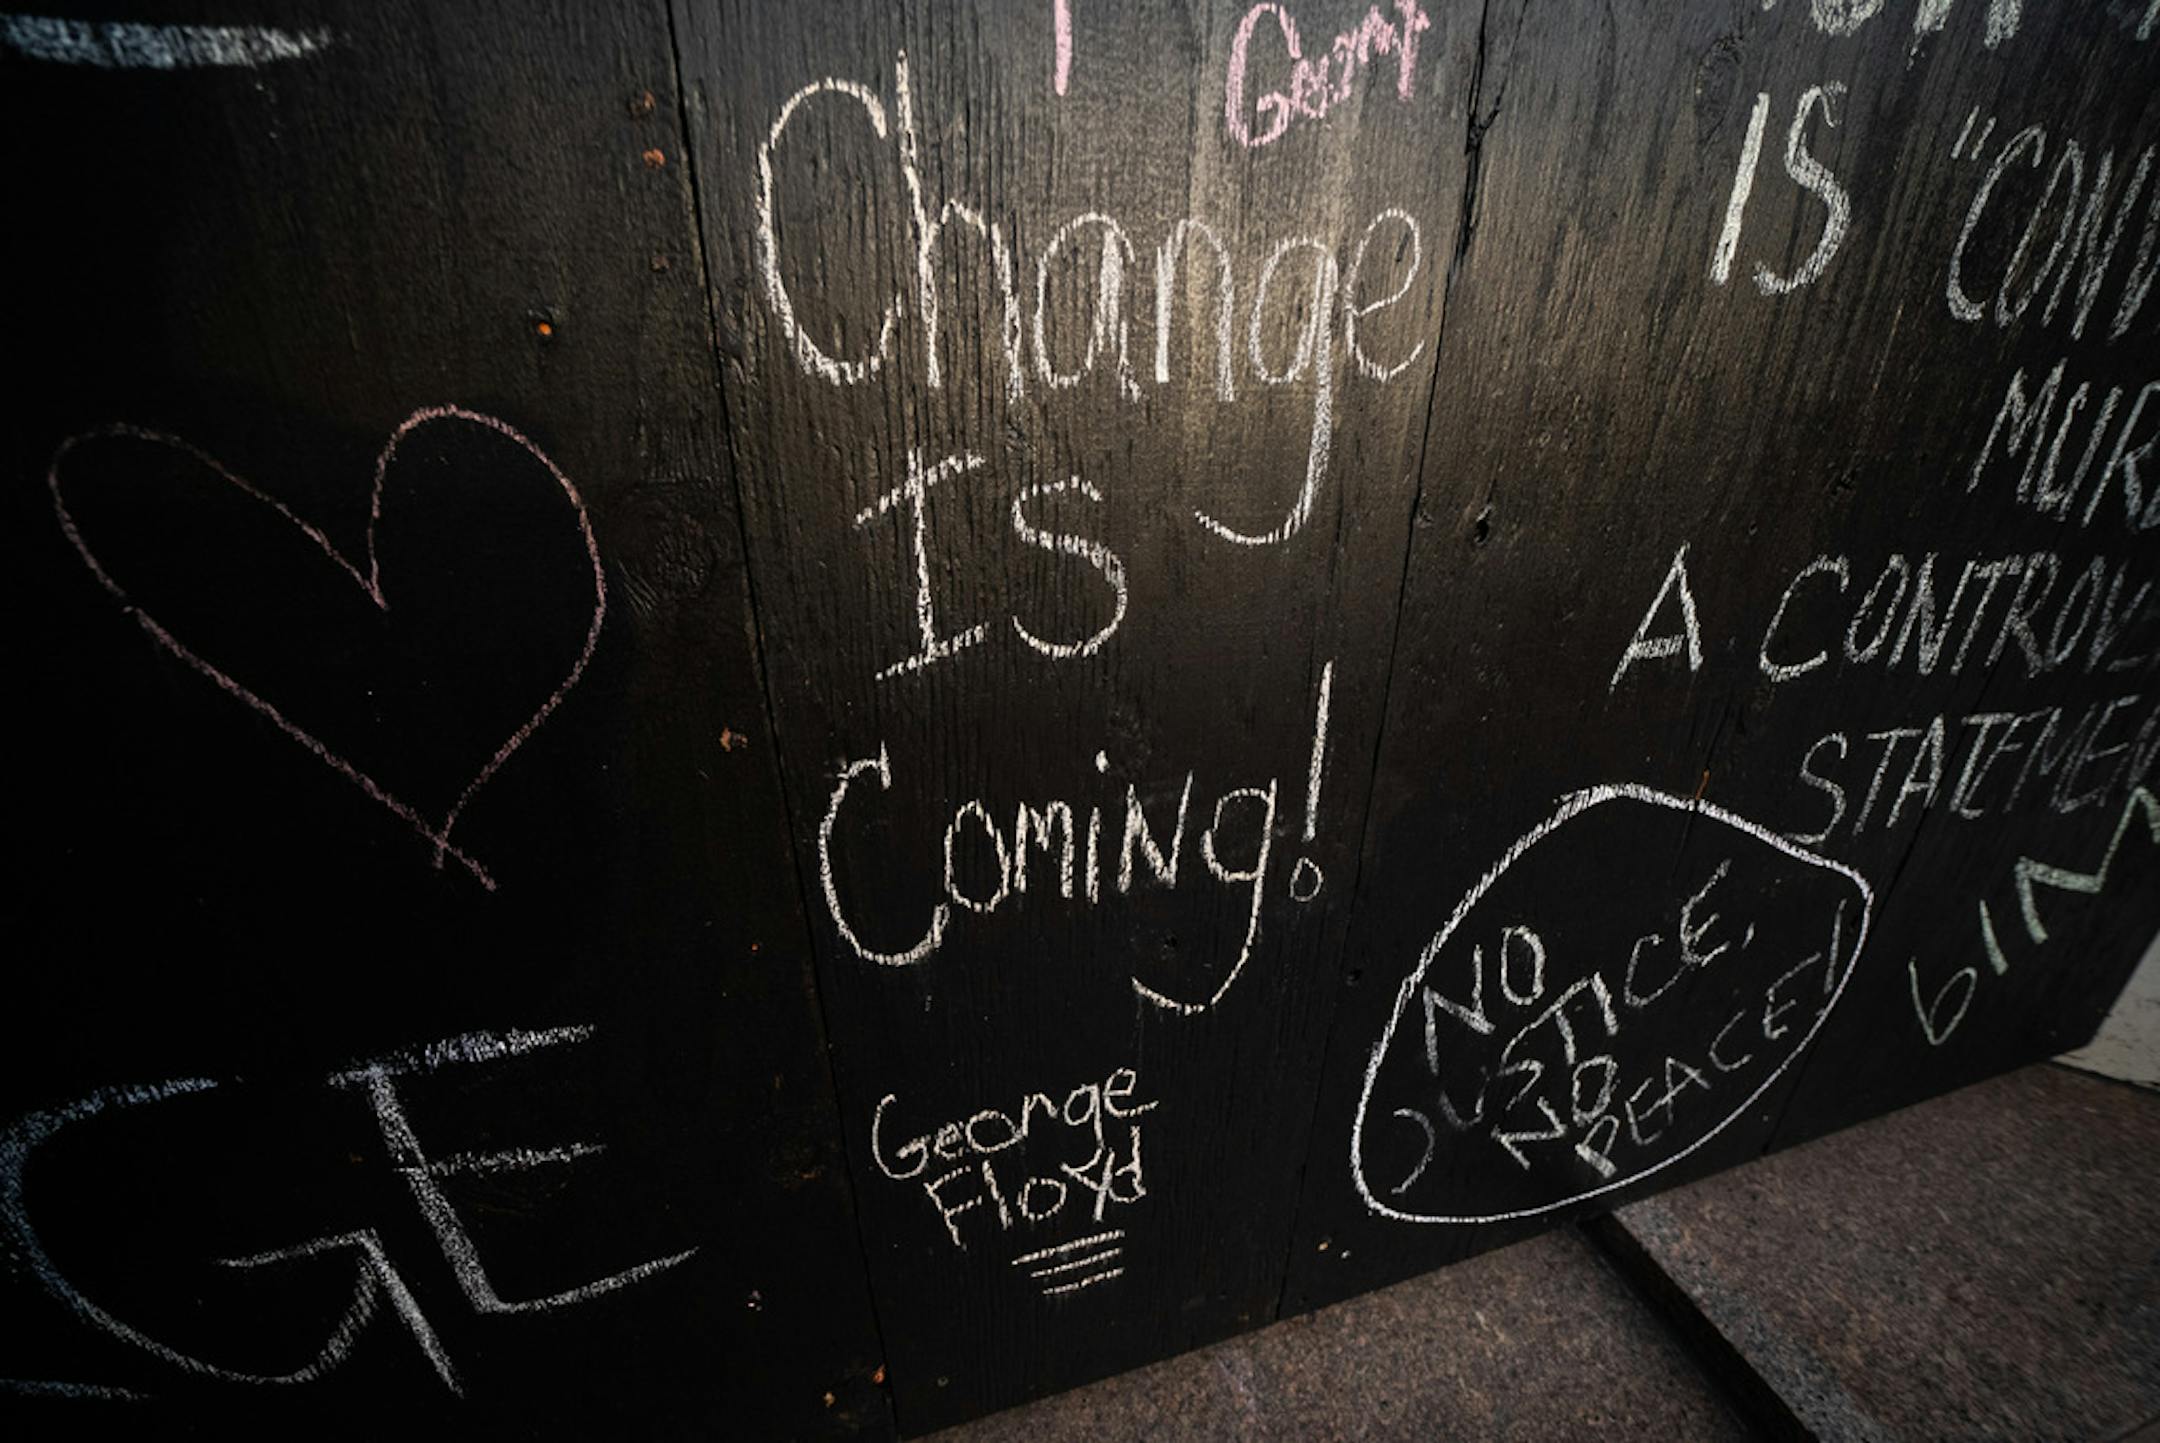 GE
Change
Is
Coming!
George
Floyd
IS "CONV
MUR
A CONTROVE
STATEMEN
NO
JUSTICE,
NO
PEACE!